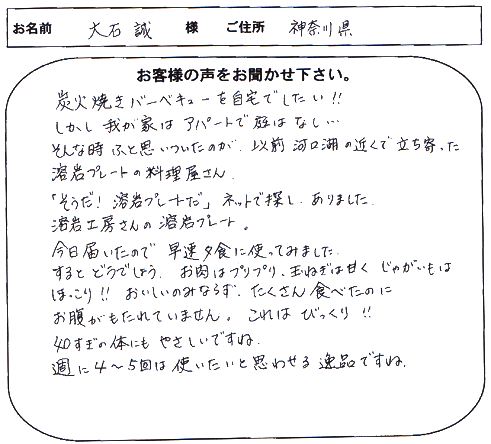 お名前 大石 誠 様 ご住所 神奈川県
お客様の声をお聞かせ下さい。
炭火焼きバーベキューを自宅でしたい!!
しかし 我が家は アパートで庭はなし…
そんな時 ふと思いついたのが、以前 河口湖の近くで立ち寄った
溶岩プレートの料理屋さん。
「そうだ! 溶岩プレートだ」 ネットで探し、ありました。
溶岩工房さんの 溶岩プレート。
今日届いたので 早速夕食に使ってみました。
すると どうでしょう、 お肉はプリプリ、玉ねぎは甘く じゃがいもは
ほっこり!! おいしいのみならず、たくさん食べたのに
お腹がもたれていません。 これは びっくり!!
40すぎの体にも やさしいですね。
週に4〜5回は使いたいと思わせる 逸品ですね。